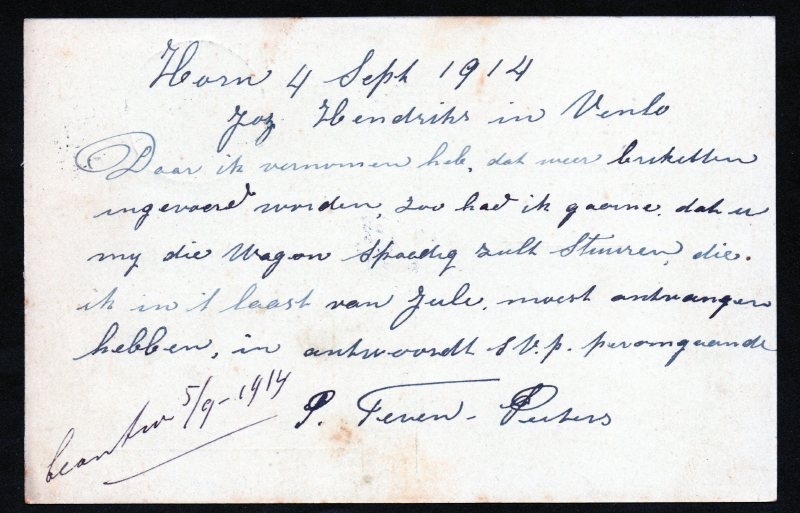 Horn 4 Sept 1914
Joz Hendriks in Venlo
Daar ik vernomen heb, dat weer briketten
ingevoerd worden, zoo had ik gaarne, dat u
my die Wagon spoedig zult stuuren, die
ik in 't laast van Jule, moest antvangen
hebben, in antwoordt s.V.p. peromgaande
P. Teven - Peeters
beantw 5/9-1914